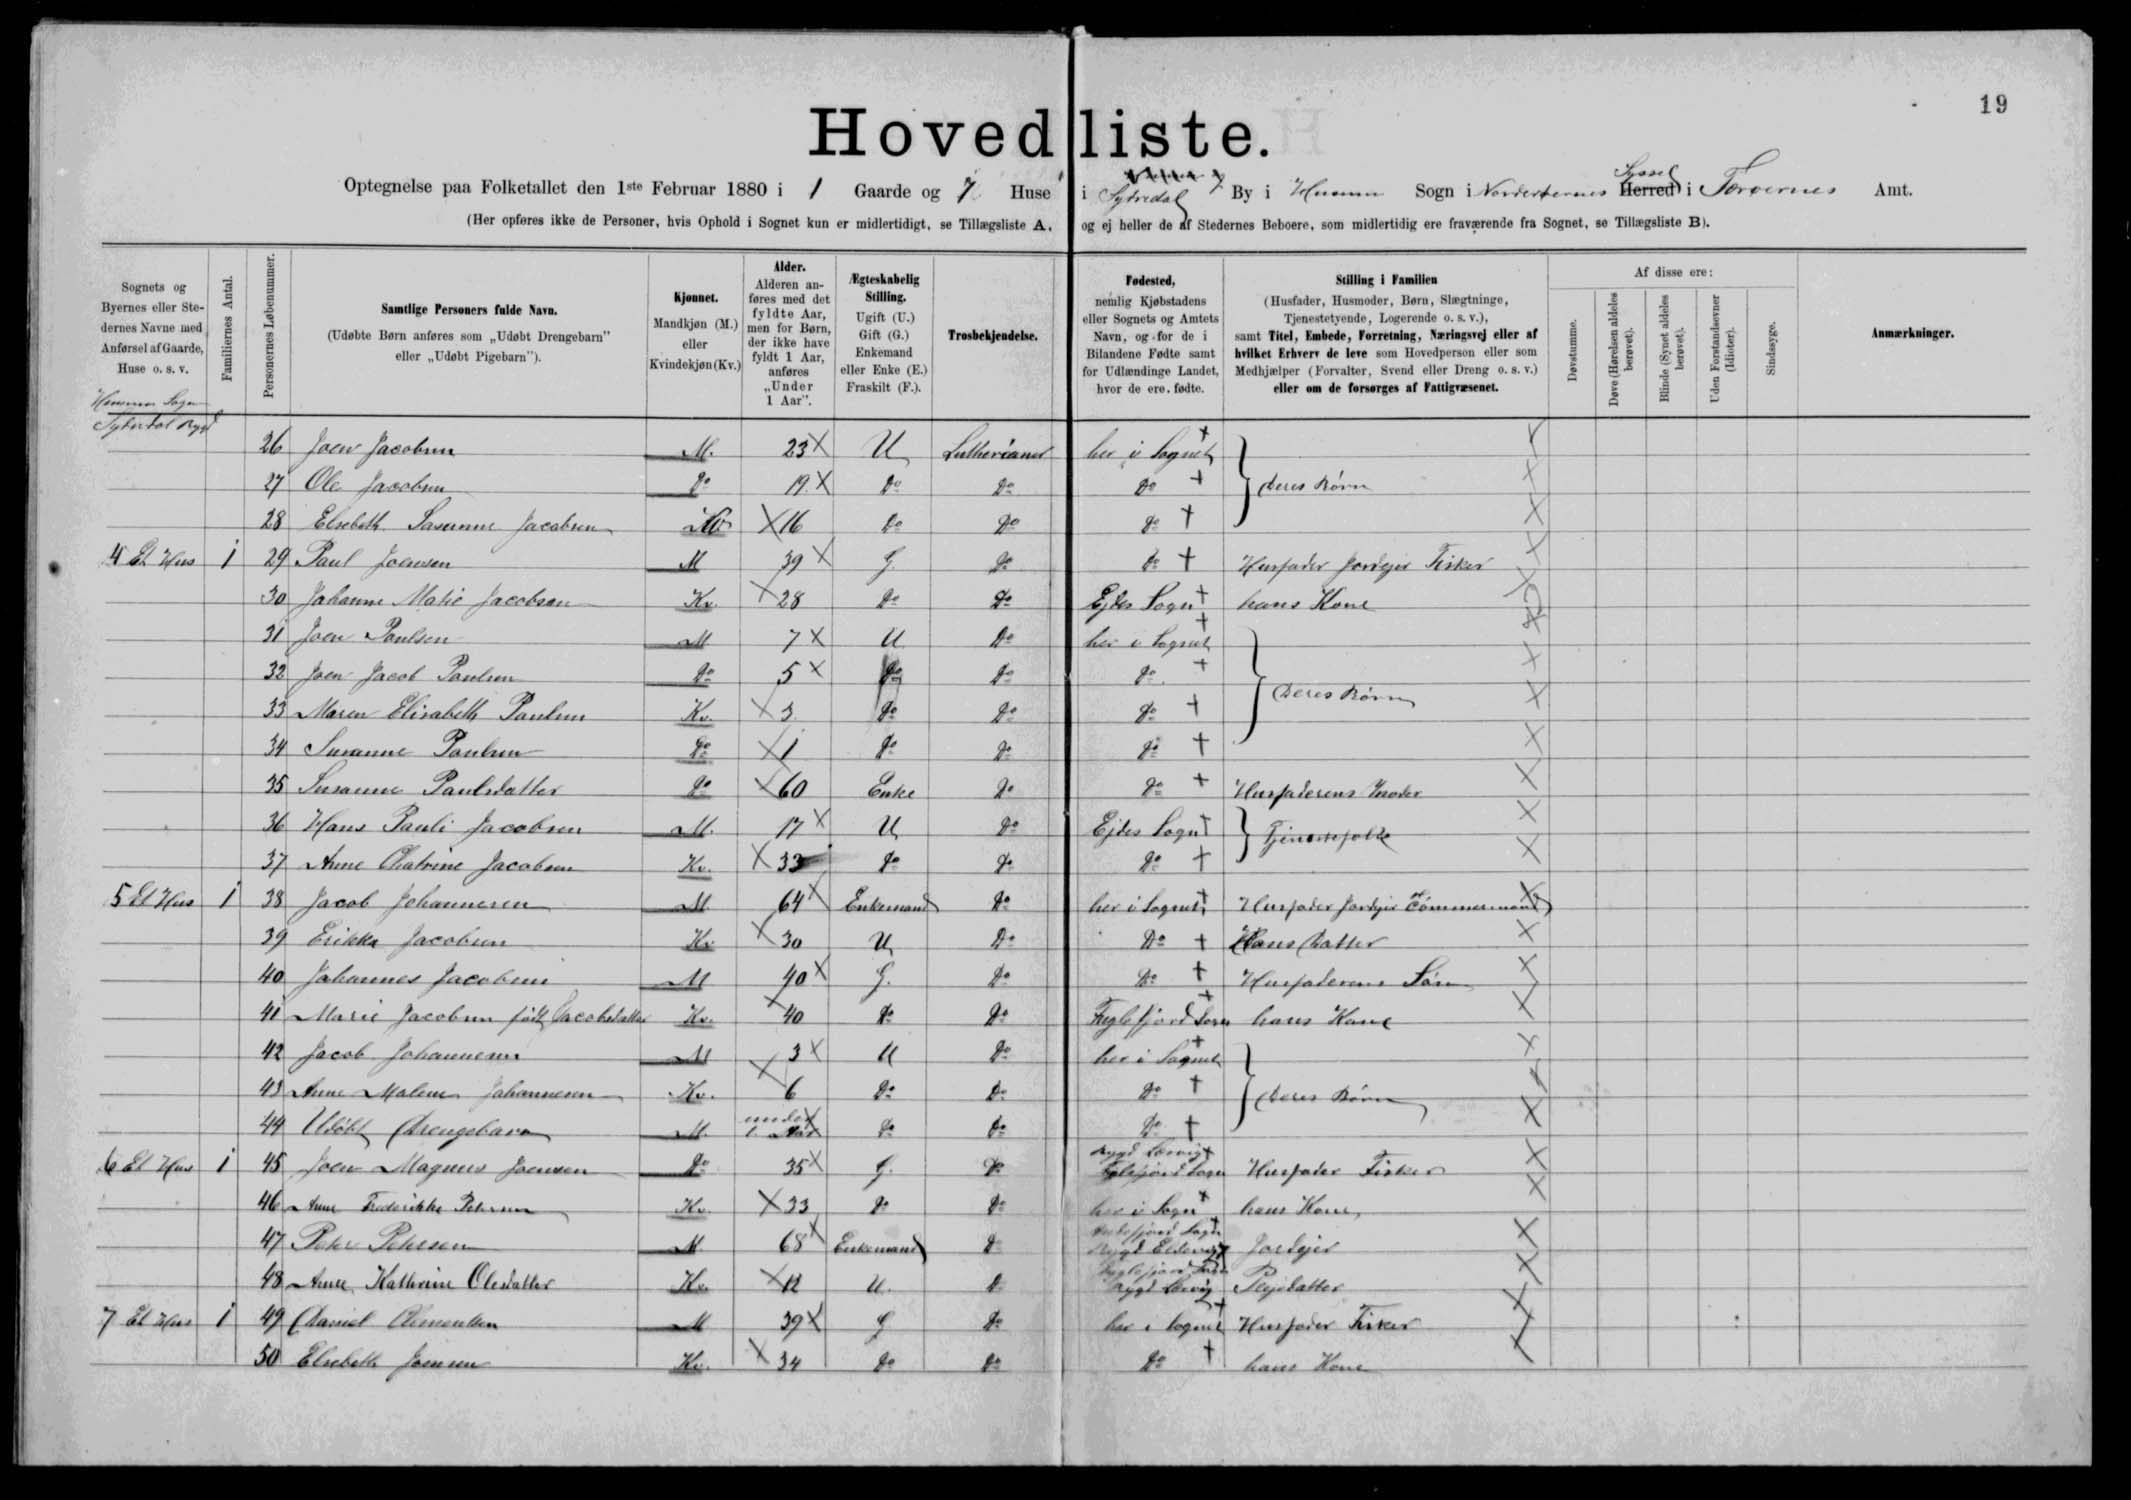 19
Hovedliste.
Optegnelse paa Folketallet den 1ste Februar 1880 i 1 Gaarde og 7 Huse i Sytredal By i Husum Sogn i Norderøernes Syssel Herred i Færøernes Amt.
(Her opføres ikke de Personer, hvis Ophold i Sognet kun er midlertidigt, se Tillægsliste A, og ej heller de af Stedernes Beboere, som midlertidig ere fraværende fra Sognet, se Tillægsliste B).
Sognets og Byernes eller Stedernes Navne med Anførsel af Gaarde, Huse o. s. v.
Familiernes Antal.
Personernes Løbenummer.
Samtlige Personers fulde Navn.
(Udøbte Børn anføres som „Udøbt Drengebarn” eller „Udøbt Pigebarn”).
Kjønnet.
Mandkjøn (M.) eller Kvindekjøn (Kv.)
Alder.
Alderen anføres med det fyldte Aar, men for Børn, der ikke have fyldt 1 Aar, anføres „Under 1 Aar”.
Ægteskabelig Stilling.
Ugift (U.) Gift (G.) Enkemand eller Enke (E.) Fraskilt (F.).
Trosbekjendelse.
Fødested,
nemlig Kjøbstadens eller Sognets og Amtets Navn, og for de i Bilandene Fødte samt for Udlændinge Landet, hvor de ere fødte.
Stilling i Familien
(Husfader, Husmoder, Børn, Slægtninge, Tjenestetyende, Logerende o. s. v.),
samt Titel, Embede, Forretning, Næringsvej eller af hvilket Erhverv de leve som Hovedperson eller som Medhjælper (Forvalter, Svend eller Dreng o. s. v.) eller om de forsørges af Fattigvæsenet.
Af disse ere:
Døvstumme.
Døve (Hørelsen aldeles berøvet).
Blinde (Synet aldeles berøvet).
Uden Forstandsevner (Idioter).
Sindssyge.
Anmærkninger.
Husum Sogn
Sytredal Bygd
26 Joen Jacobsen M. 23 U Lutheraner her i Sognet
27 Ole Jacobsen Do 19 Do Do Do Deres Børn
28 Elsebeth Susanne Jacobsen Kv 16 Do Do Do
4 Et Hus 1 29 Paul Joensen M 39 G. Do Do Husfader Jordejer Fisker
30 Johanne Marie Jacobsen Kv. 28 Do Do Ejdes Sogn hans Kone
31 Joen Poulsen M 7 U Do her i Sognet
32 Joen Jacob Poulsen Do 5 Do Do Do
33 Maren Elisabeth Poulsen Kv. 3 Do Do Do Deres Børn
34 Susanne Poulsen Do 1 Do Do Do
35 Susanne Paulsdatter Do 60 Enke Do Do Husfaderens Moder
36 Hans Pauli Jacobsen M. 17 U Do Ejdes Sogn Tjenestefolk
37 Anne Chatrine Jacobsen Kv. 33 Do Do Do
5 Et Hus 1 38 Jacob Johannesen M 64 Enkemand Do her i Sognet Husfader Jordejer Tømmermand
39 Erikka Jacobsen Kv 30 U Do Do Hans Datter
40 Johannes Jacobsen M 40 G. Do Do Husfaderens Søn
41 Marie Jacobsen født Jacobsdatter Kv. 40 Do Do Fuglefjord Sogn hans Kone
42 Jacob Johannesen M 3 U Do her i Sognet
43 Anne Malene Johannesen Kv. 6 Do Do Do Deres Børn
44 Udøbt Drengebarn M. under 1 Aar Do Do Do
6 Et Hus 1 45 Joen Magnus Joensen Do 35 G. Do Bygd Lervig Fuglefjord Sogn Husfader Fisker
46 Anne Frederikke Petersen Kv. 33 Do Do her i Sogn hans Kone
47 Peter Petersen M 68 Enkemand Do Fuglefjord Sogn Bygd Eldevig Jordejer
48 Anne Kathrine Olesdatter Kv. 12 U. D Fuglefjord Sogn Bygd Lervig Plejedatter
7 Et Hus 1 49 Daniel Clementsen M 39 G Do her i Sognet Husfader Fisker
50 Elsebeth Joensen Kv. 34 Do Do Do hans Kone